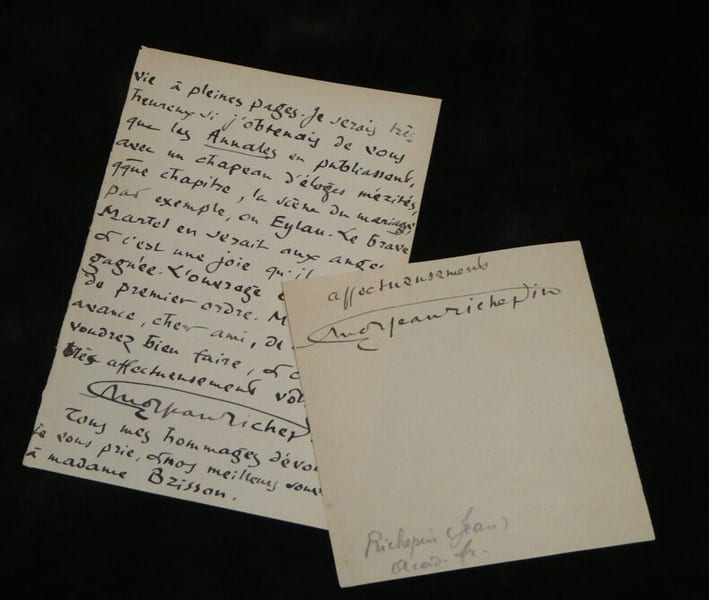 vie à pleines pages. Je serais très
heureux si j'obtenais de vous
que les Annales en publiassent,
avec un chapeau d'éloges mérités,
qque chapitre, la scène du mariage,
par exemple, ou Eylau. Le brave
Martel en serait aux ange
& c'est une joie qu'il
gagnée. L'ouvrage
de premier ordre. M
avance, cher ami, de
voudrez bien faire, &
très affectueusement vo
jeanrichep
Tous mes hommages dévo
je vous prie, & nos meilleurs souve
à madame Brisson.
affectueusement
jeanrichepin
Richepin (Jean)
Acad. fr.